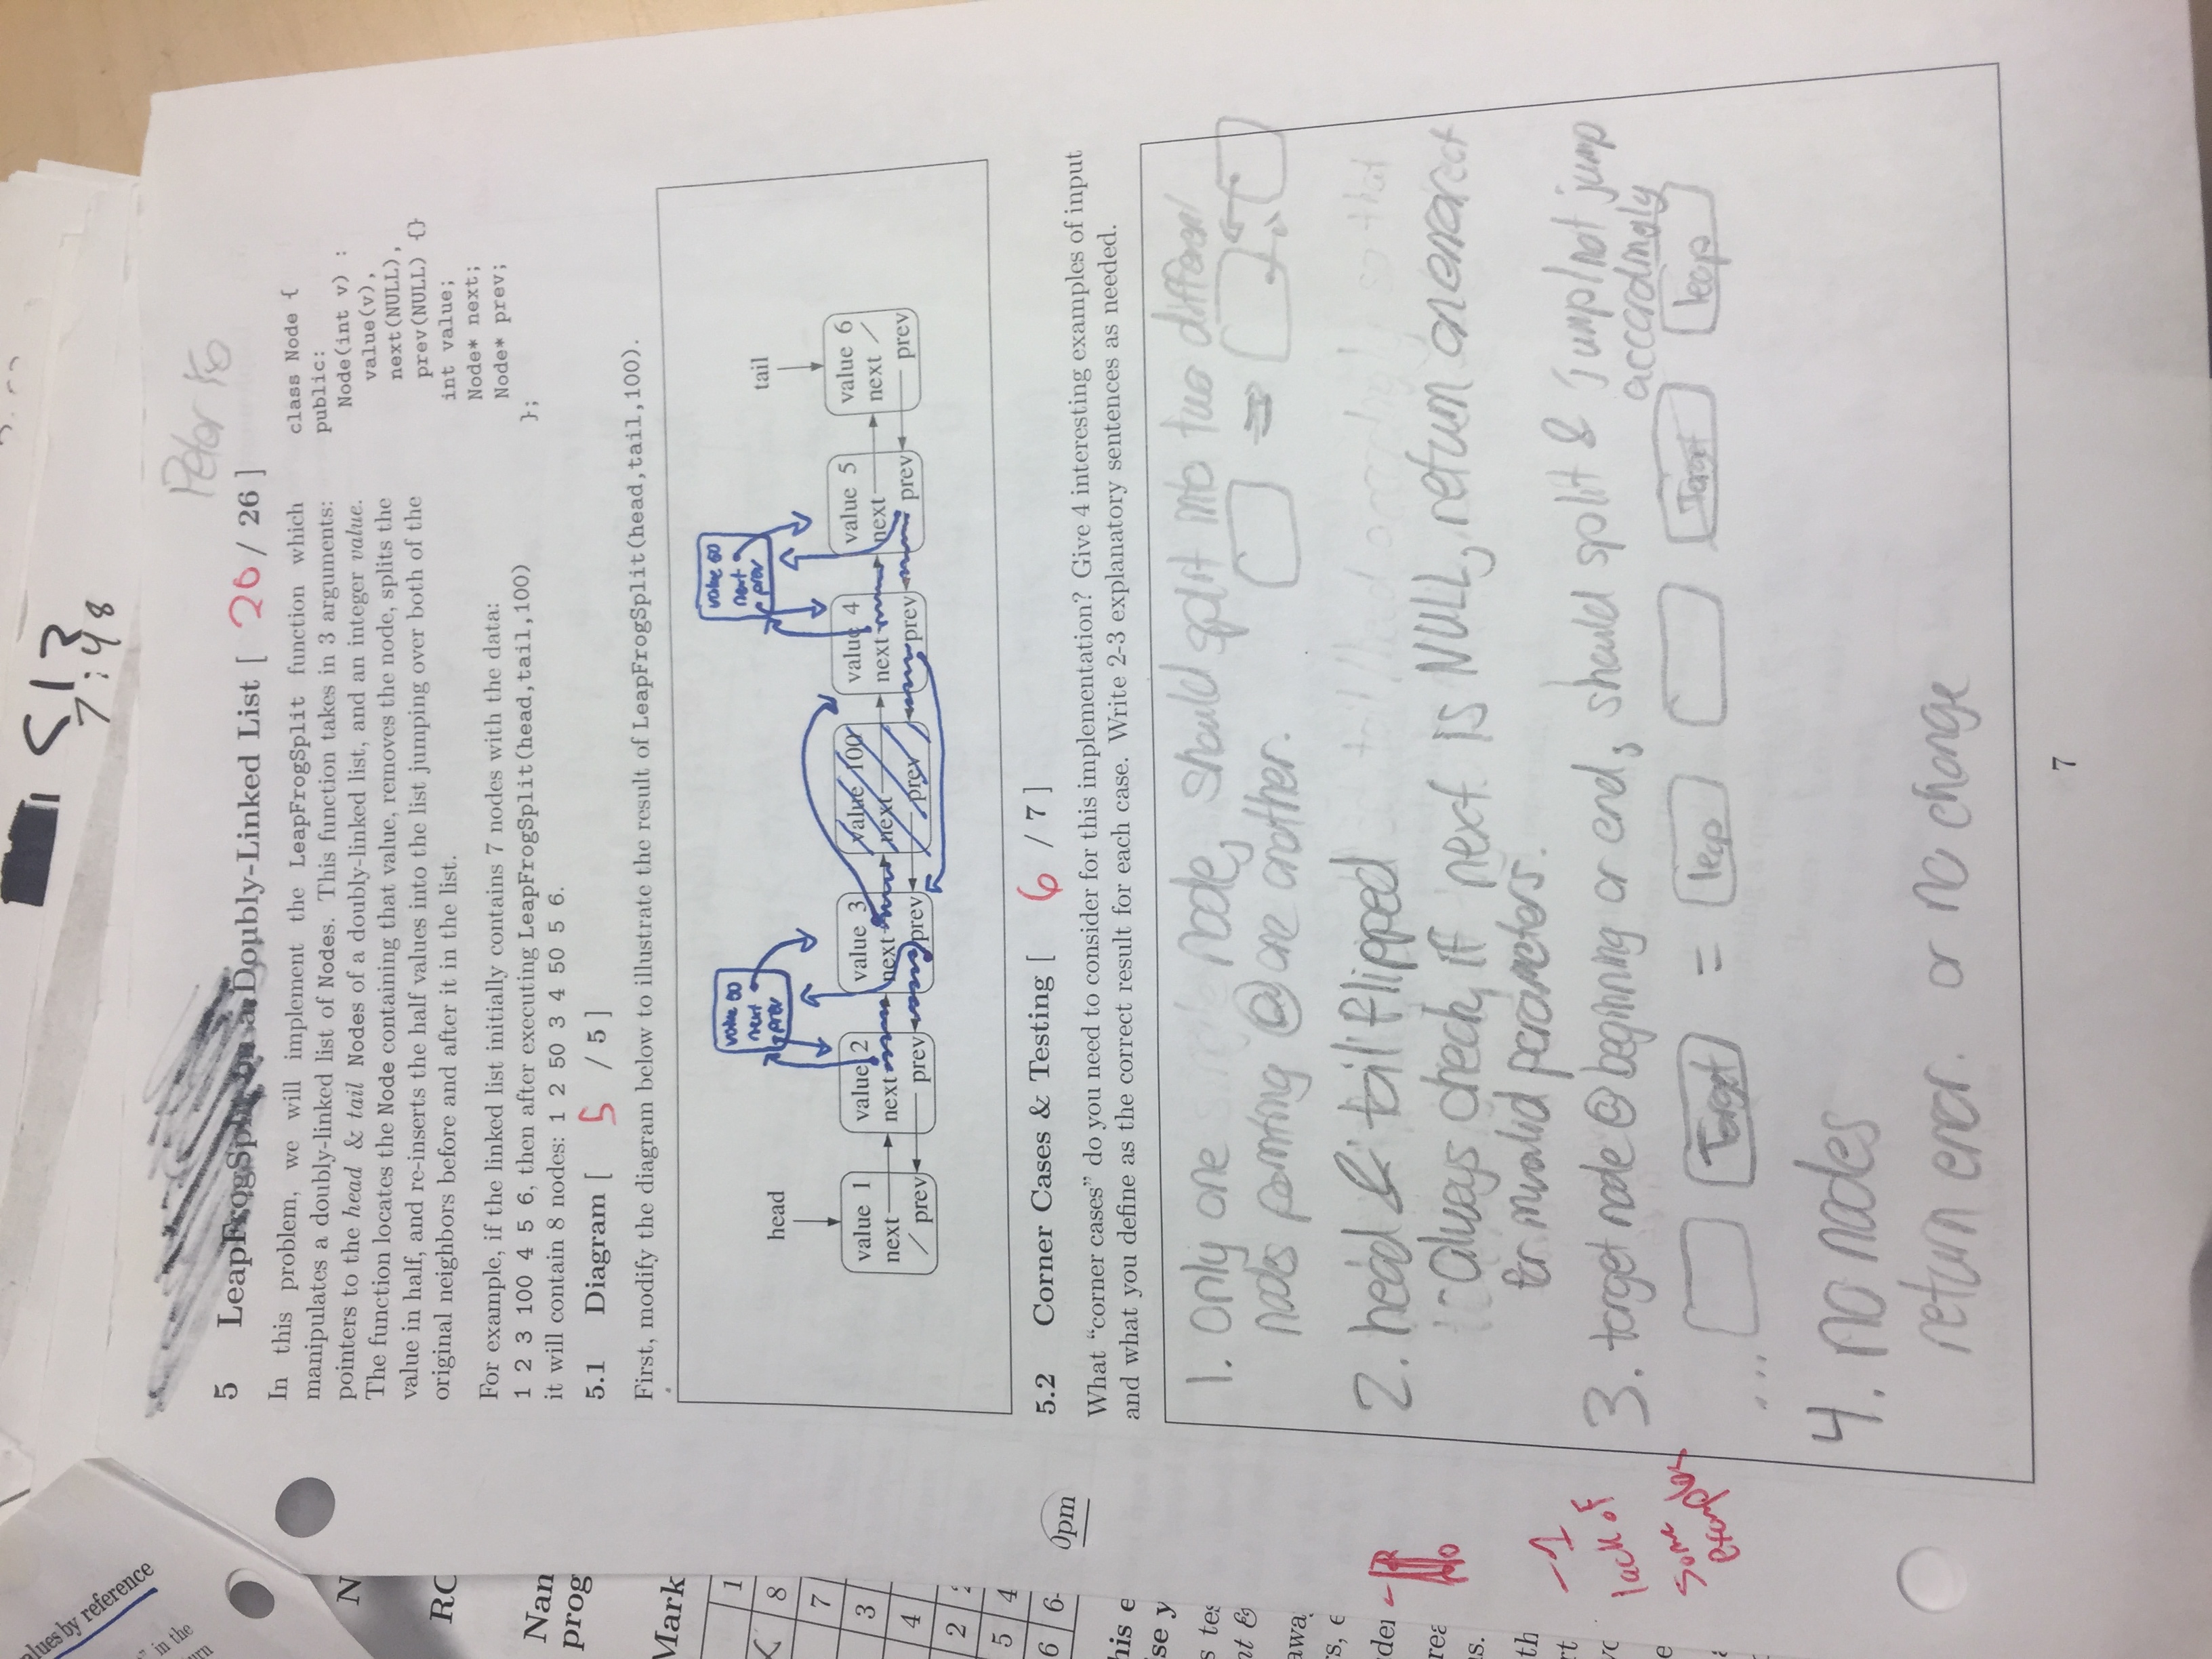 S 13
7:48
alues by reference
in the
Peter Ko
5 LeapFrogSplit on a Doubly-Linked List [ 20 / 26 ]
In this problem, we will implement the LeapFrogSplit function which
manipulates a doubly-linked list of Nodes. This function takes in 3 arguments:
pointers to the head & tail Nodes of a doubly-linked list, and an integer value.
The function locates the Node containing that value, removes the node, splits the
value in half, and re-inserts the half values into the list jumping over both of the
original neighbors before and after it in the list.
For example, if the linked list initially contains 7 nodes with the data:
1 2 3 100 4 5 6, then after executing LeapFrogSplit(head,tail,100)
it will contain 8 nodes: 1 2 50 3 4 50 5 6.
class Node {
public:
Node(int v) :
value(v),
next(NULL),
prev(NULL) {}
int value;
Node* next;
Node* prev;
};
5.1 Diagram [ 5 / 5 ]
First, modify the diagram below to illustrate the result of LeapFrogSplit(head,tail,100).
value 50
next
prev
value 50
next
prev
head
tail
value 1
next
/ prev
value 2
next
prev
value 3
next
prev
value 100
next
prev
value 4
next
prev
value 5
next
prev
value 6
next /
prev
5.2 Corner Cases & Testing [ 6 / 7 ]
What “corner cases” do you need to consider for this implementation? Give 4 interesting examples of input
and what you define as the correct result for each case. Write 2-3 explanatory sentences as needed.
1. only one node, should split into two different
nodes pointing @ one another.
2. head & tail flipped
- Always check, if next is NULL, return an error
for invalid parameters.
3. target node @ beginning or end, should split & Jump/not jump
accordingly
... Target = leap Target leap
4. no nodes
return error. or no change
-1
lack of
some
examples
7
N
RC
Nan
prog
Mark
1
8
7
3
4
2
5 4
6 6-
0pm